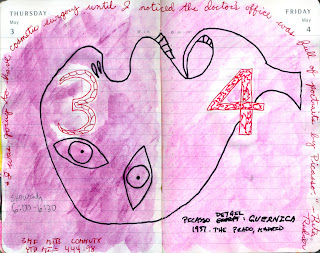 "I was going to have cosmetic surgery until I noticed the doctor's office was full of portraits by Picasso." Rita Rudner
THURSDAY
May
3
FRIDAY
May
4
3
4
6:00-6:30
PICASSO DETAIL: GUERNICA
1937. THE PRADO, MADRID
3RD MTB COMMUTE
YTD MI = 444.78